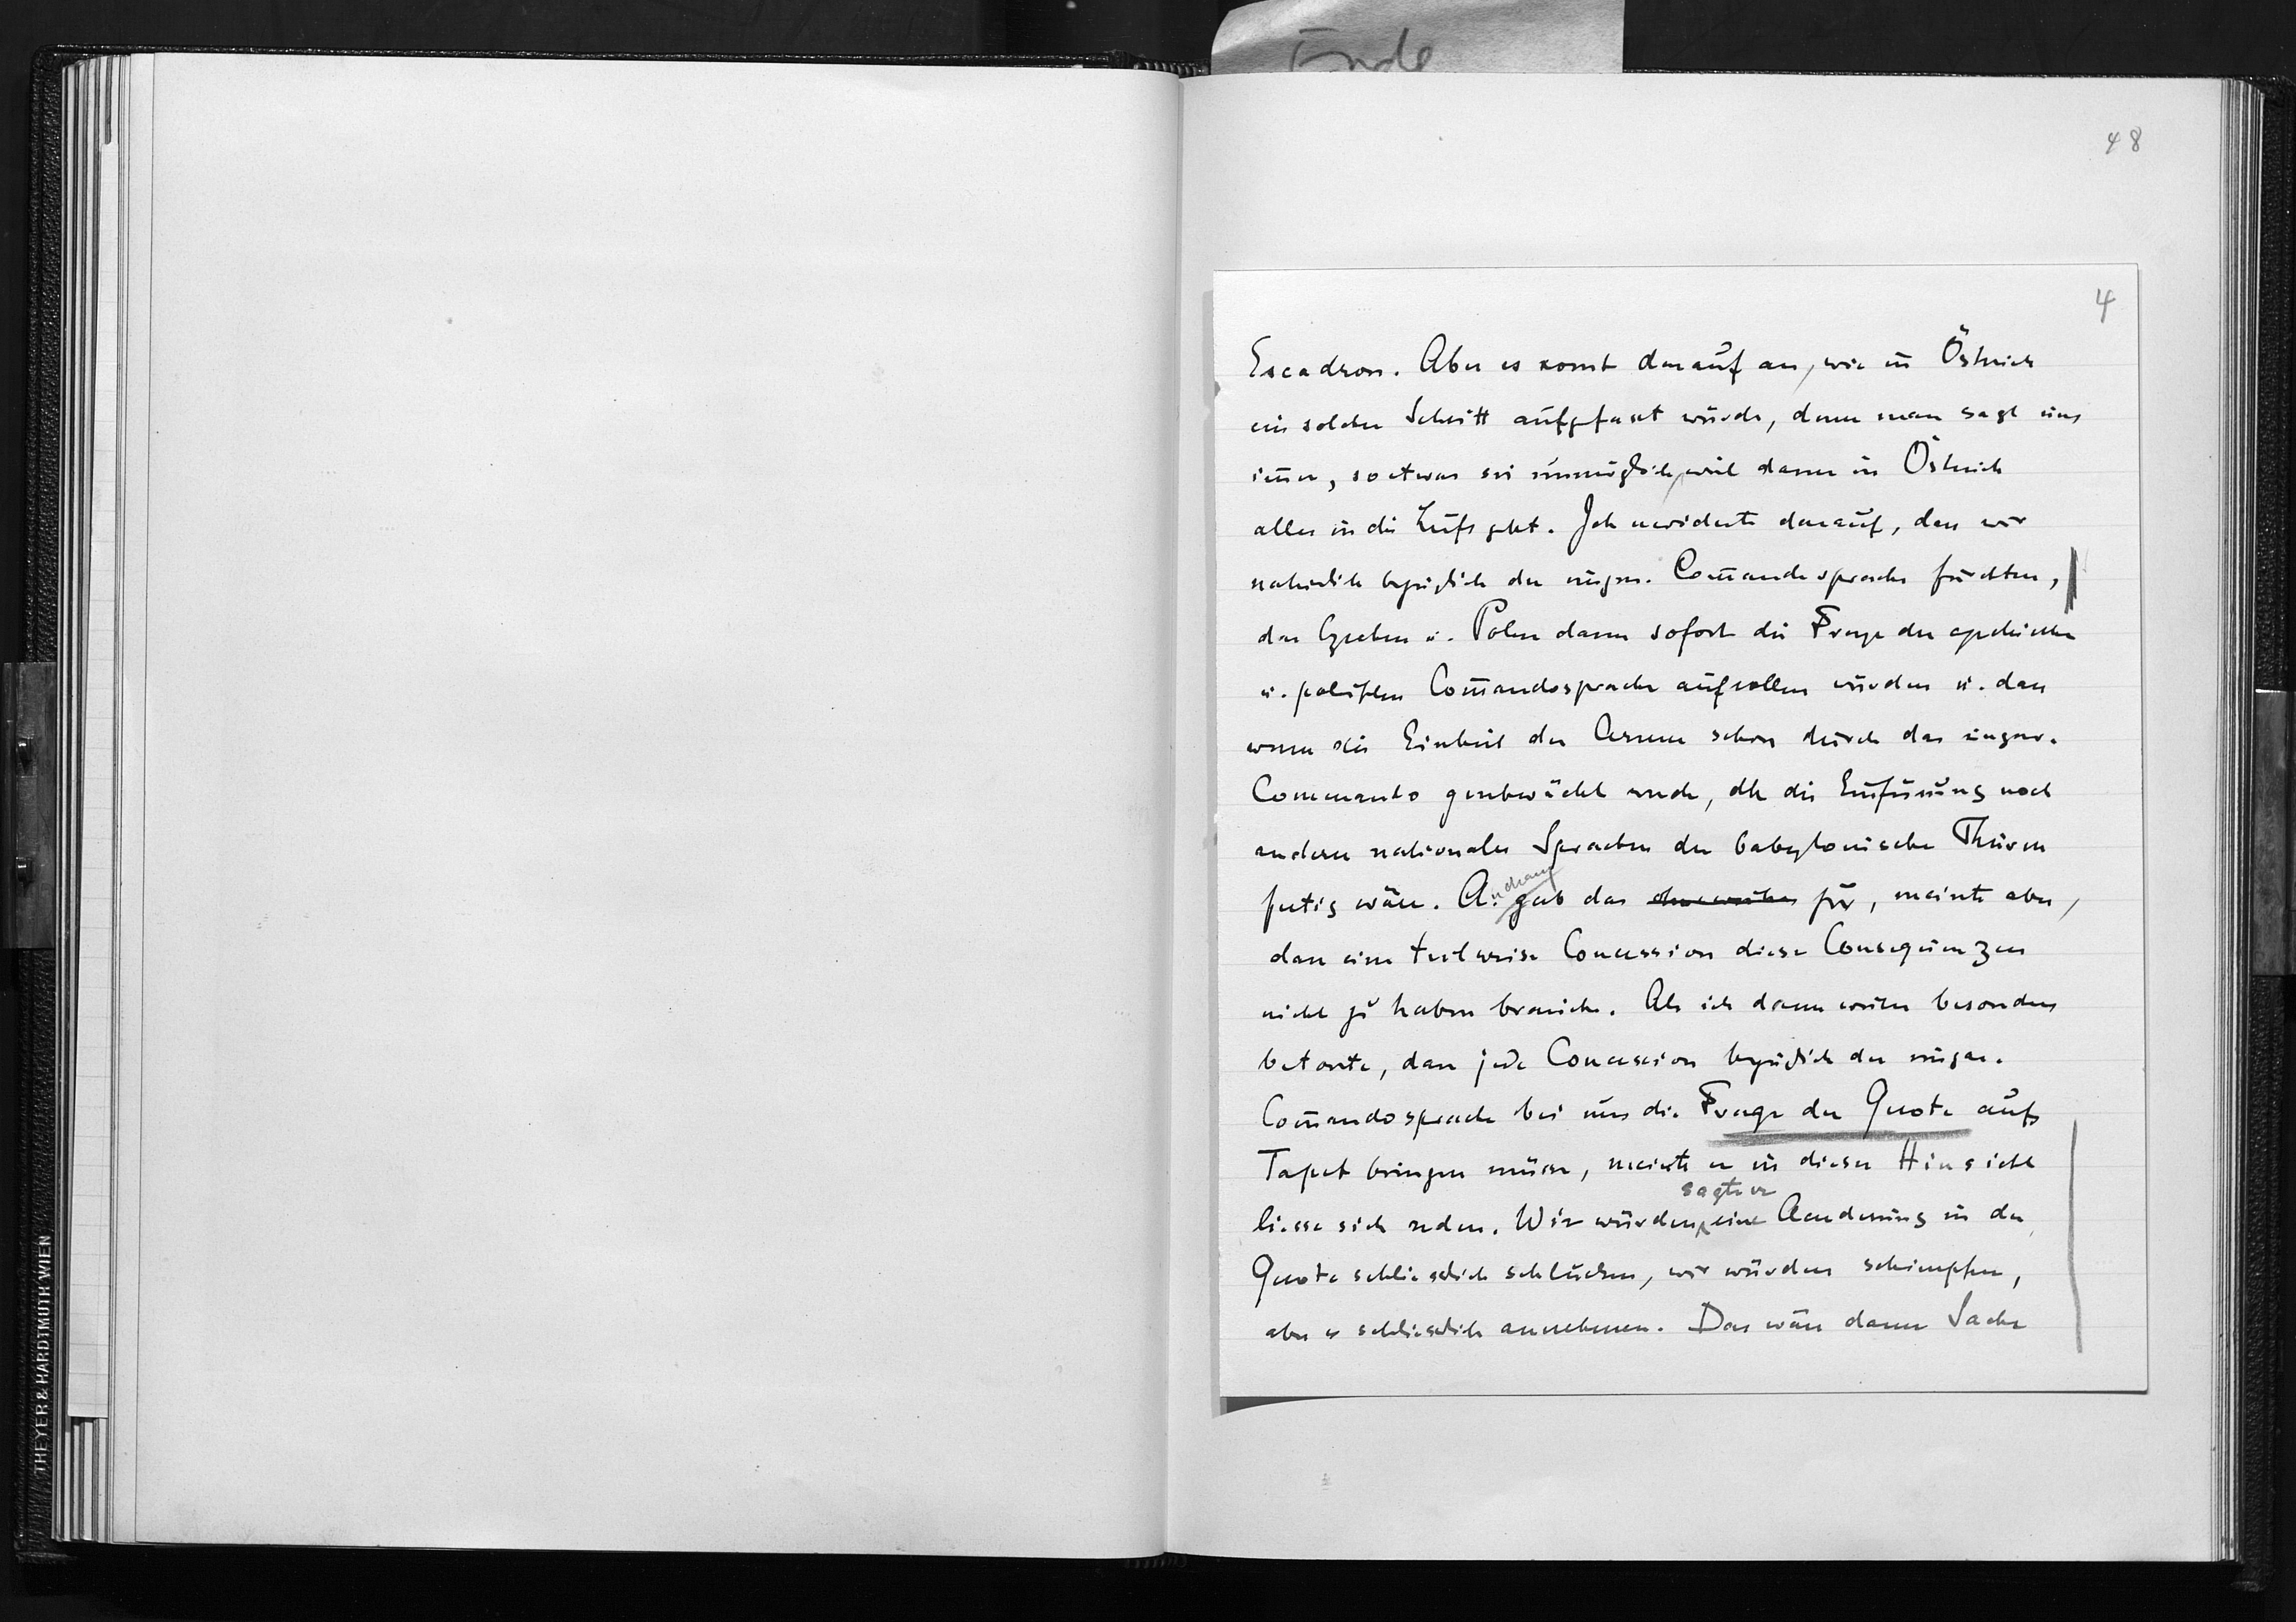 Ende
48
4
Escadron. Aber es komt darauf an, wie in Östreich
ein solcher Schritt aufgefasst würde, denn man sagt uns
imer, so etwas sei unmöglich, weil dann in Östreich
alles in die Luft geht. Ich erwiderte darauf, dass wir
natürlich bezüglich der ungar. Comandosprache fürchten,
dass Czechen u. Polen dann sofort die Frage der czechischen
u. polnischen Comandosprache aufrollen würden u. dass
wenn die Einheit der Armee schon durch das ungar.
Commando geschwächt werde, die Einfürung noch
anderer nationaler Sprachen der babylonische Thurm
fertig wäre. A. ndrassy gab das für, meinte aber,
dass eine teilweise Concession diese Consequenzen
nicht zu haben brauche. Als ich dann weiter besonders
betonte, dass jede Concession bezüglich der ungar.
Comandosprache bei uns die Frage der Quote aufs
Tapet bringen müsse, meinte er in dieser Hinsicht
liesse sich reden. Wir würden, sagte er eine Aenderung in der
Quote schliesslich schlucken, wir würden schimpfen,
aber es schliesslich annehmen. Das wäre dann Sache
THEYER & HARDTMUTH WIEN